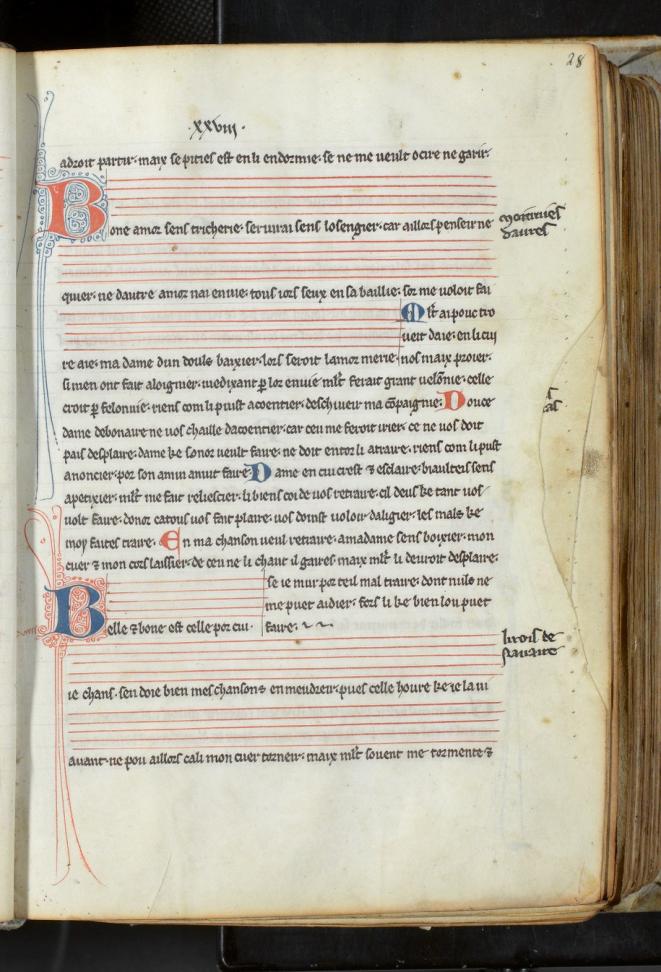 28
.xxviij.
adroit partir. maix se pities est en li endormie. se ne me veult ocire ne garir.
Bone amor sens tricherie. servirai sens losengier. car aillors penseir ne
moitinies
daures
quier. ne dautre amor nai envie. tous iors seux en sa baillie. sor me voloit fai
Mlt ai pouc tro
veit daie. en li cui
re aie. ma dame dun douls baixier. lors seroit lamor merie. nos maix proier.
si men ont fait aloignier. medixant p lor envie mlt ferait grant velonie. celle
croit p felonnie. riens com li puist acoentier. deschiveir ma copaignie. Douce
dame debonaire ne vos chaille dacoentier. car ceu me feroit irier. ce ne vos doit
pais desplaire. dame ke sonor veult faire. ne doit entor li atraire. riens com li puist
anoncier. por son amin anuit faire. Dame en cui crest & esclaire. biaulteis sens
apetixier. mlt me fait resiescier. li biens coi de vos retraire. cil deus ke tant vos
volt faire. donor ca tous vos fait plaire. vos doinst voloir daligier. les mals ke
moy faites traire. En ma chanson veul retraire. a ma dame sens boixier. mon
cuer & mon cors laissier. de ceu ne li chaut il gaires. maix mlt li devroit desplaire.
se ie mur por teil mal traire. dont nuls ne
me puet aidier. fors li ke bien lou puet
Belle & bone est celle por cui. faire.
li rois de
navaire
ie chans. sen doie bien mes chansons en meudreir. pues celle houre ke ie la vi
avant. ne pou aillors ca li mon cuer torneir. maix mlt sovent me tormente &